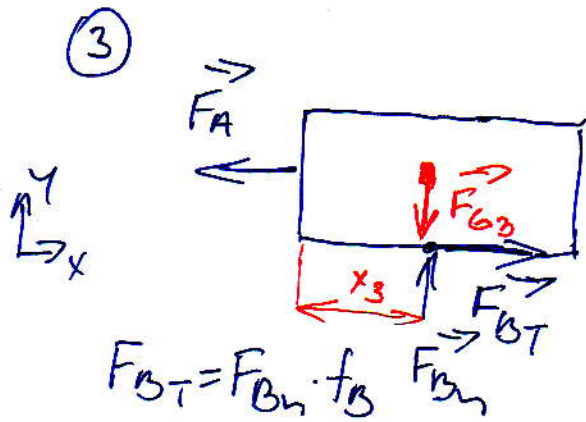 3
F_A
y
x
F_G3
x_3
F_BT
F_BT = F_Bn · f_B
F_Bn